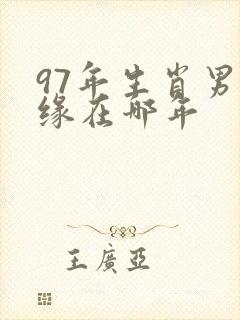 97年生肖男
缘在哪年
王廣亞